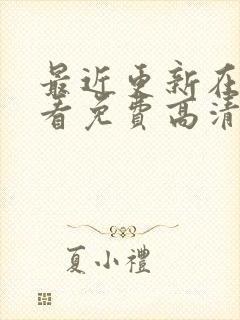 最近更新在
看免費高清
夏小禮